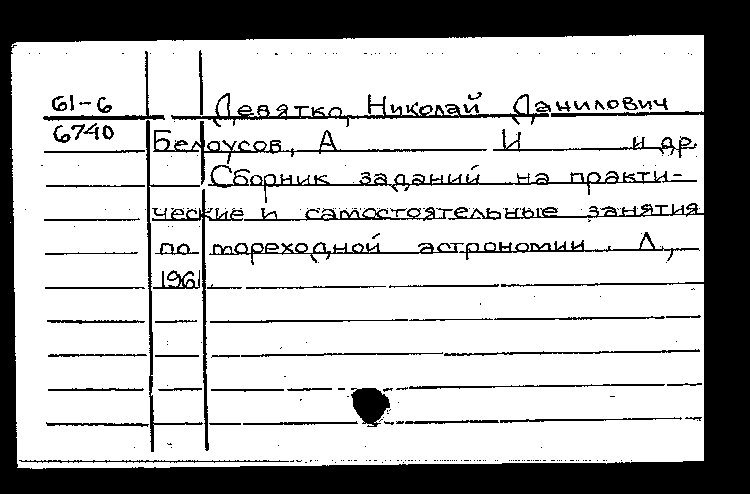 61-6 Девятко, Николай Данилович
6740 Белоусов, А И и др.
Сборник заданий на практи-
ческие и самостоятельные занятия
по мореходной астрономии. Л.,
1961.